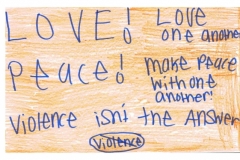 LOVE! Love
one another
Peace! Make Peace
with one
another!
Violence isn't the Answer
Violence